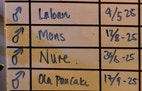 ♂ Laban 9/5-25
♂ Mons 17/8-25
♂ Nure. 30/8-25
♂ Ola Pancake 17/9-25